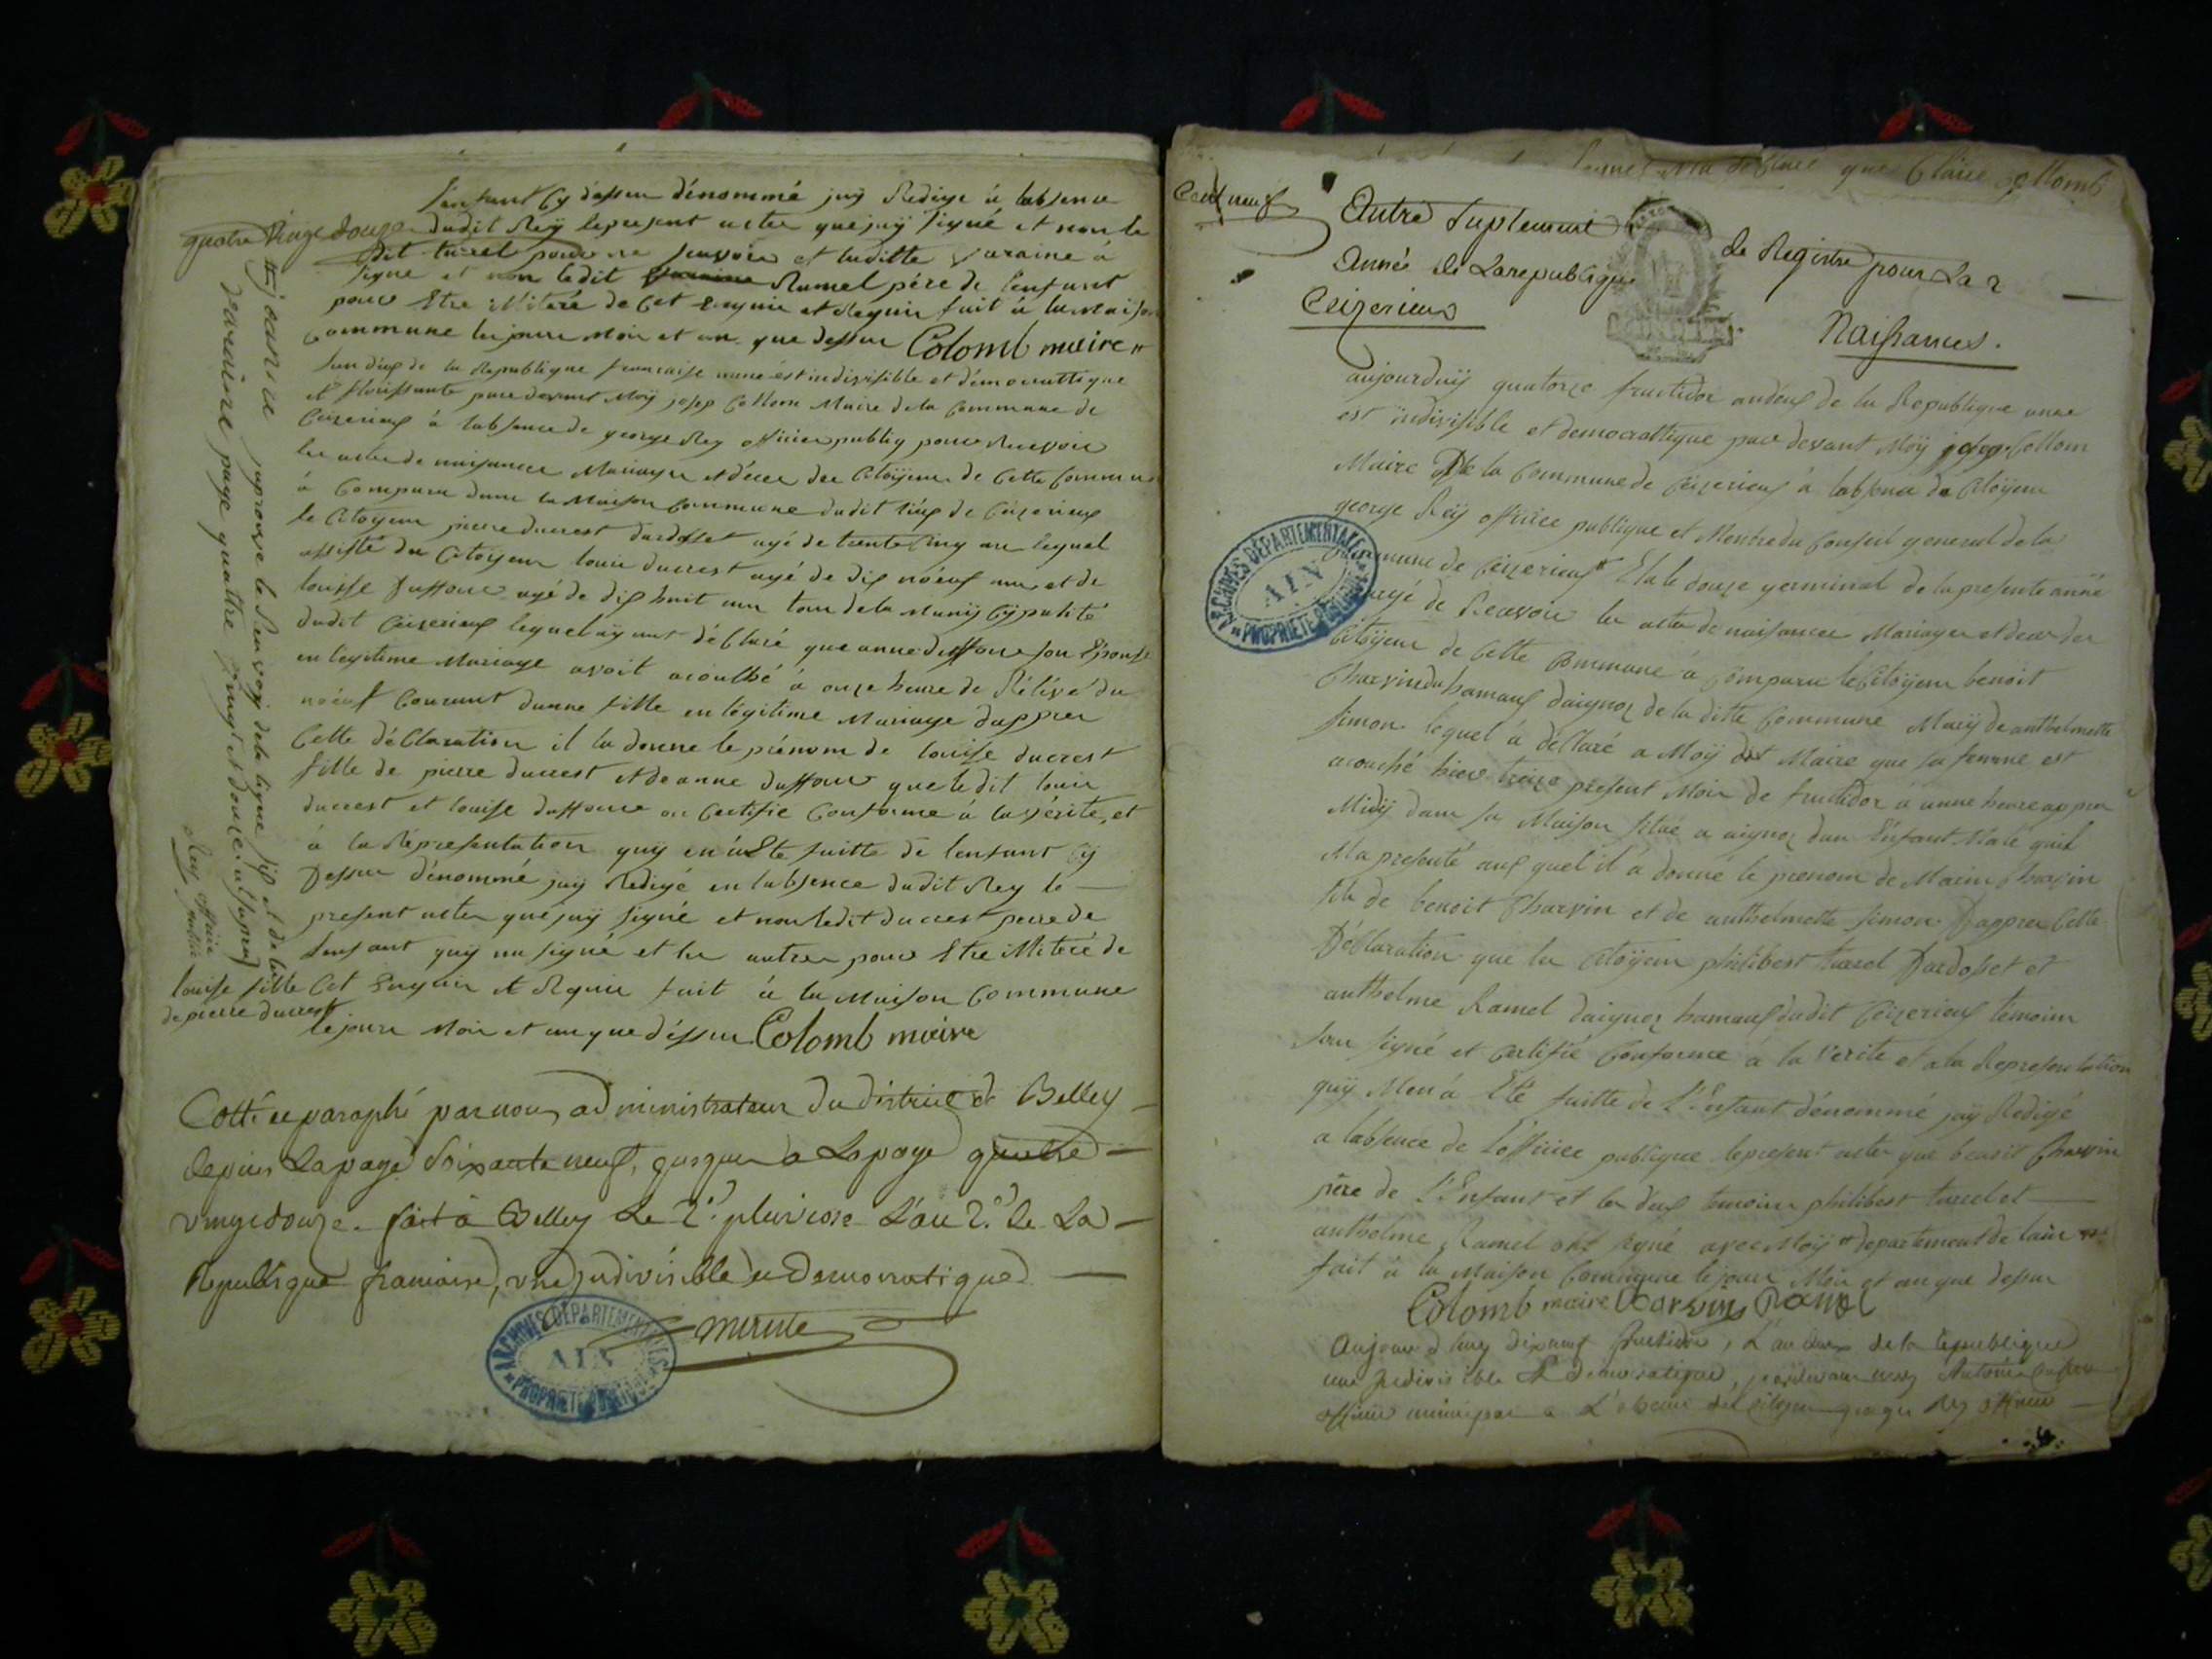 l'enfant Cy dessu dénommé jaÿ Redige à labsence
quatre vingt douze
dudit Reÿ lepresent acte que jaÿ signé et non le
dit turel pour ne scavoir et laditte varaine à
signe et non ledit Ramel pére de l'enfant
pour Etre de Cet Enquie et Requie fait à la Maison
Commune les jour Moir et an que dessu Colomb maire
lan deux de la Republique francaise unne est indivisible et démocrattique
et par devant Moÿ josep Collom Maire de la Commune de
Ceizerieux à labsence de george Rey officier publiq pour Recevoir
les acte de naissances Mariages et déces des Citoÿens de Cette Commune
à Comparu dans la Maison Commune dudit lieux de Ceizerieux
le Citoÿen pierre ducrest dardosset agé de trente Cinq an lequel
assisté du Citoÿen louis ducrest agé de dix nœuf ans et de
louisse duffour agé de dix huit ans tous de la Munÿcÿpalité
dudit Ceizerieux lequel aÿant déClaré que anne duffour son Epouse
en legitime Mariage avoit acouthé à onze heure de du
nœuf Courant dunne fille en légitime Mariage dapprer
Cette déClaration il la donne le prénom de louisse ducrest
fille de pierre ducrest et de anne duffour que ledit louis
ducrest et louisse duffour on Certifié Conforme à la vérité, et
à la Représentation quÿ en à Ete faitte de lenfant Cÿ
dessu dénommé jaÿ Redigé en labsence dudit Rey le
present acte que jaÿ signé et non ledit ducrest pere de
lenfant quÿ na signé et les autre pour Etre de
Cet Enquie et Requie fait à la Maison Commune
le jour Moir et an que déssu Colomb maire
japrouve le Renvoÿ de la ligne six et de la
derniere page quattre vingt et douze
Rey officier publice
louise fille
de pierre ducrest
Cotté et paraphé par nous administrateur du district de Belley
depuis la page soixante neuf, jusques a la page quatre
vingt douze. fait à Belley le 2.e pluviose l'an 2.e de la
Republique francaise, une indivisible et Democratique
ARCHIVES DÉPARTEMENTALES
AIN
PROPRIÉTÉ PUBLIQUE
que Claire Collomb
Cent neuf
Autre suplement de Registre pour la 2
Année de la republique
Ceizerieux
Naissances.
aujourduÿ quatorze fructidor an deux de la Republique unne
est indivisible et democrattique par devant Moÿ josep Collom
Maire De la Commune de Ceizerieux à labsence du Citoÿen
george Reÿ officie publique et Menbre du Conseil general de la
Commune de Ceizerieux Elu le douze germinal de la presente anné
de Recevoir les actes de naissances Mariages et deces des
Citoÿens de Cette Commune à Comparu le Citoÿen benoit
Charvin du hamaux daignoz de la ditte Commune Marÿ de anthelmette
simon lequel à déClaré a Moÿ dit Maire que sa femme est
acouché hier treize present Moir de fructidor à unne heure apprer
Midÿ dans sa Maison sitüé a aignoz dun Enfant Male quil
Ma présenté aux quel il à donné le prenom de Charvin
fils de benoit Charvin et de anthelmette simon Dapprer Cette
DéClaration que les Citoÿen philibert turrel Dardosset et
anthelme Ramel daignoz hamaux dudit Ceizerieux temoins
son signé et Certifié Conforme a la verite et a la Representation
quÿ Men à Eté faitte de l'Enfant dénommé jaÿ Redigé
a labsence de l'officier publique le present acte que benoit Charvin
père de l'Enfant et les deux temoins philibert turrel et
anthelme Ramel ont signé avec Moÿ departement de lain
fait à la Maison Commune le jour Moir et an que dessu
Colomb maire Charvin Ramel
Aujourd'huy dixneuf fructidor, l'an deux de la république
une indivisible et démocratique, pardevant moy Antoine
officier municipal a l'absence du citoyen george Rey officier
ARCHIVES DÉPARTEMENTALES
AIN
PROPRIÉTÉ PUBLIQUE